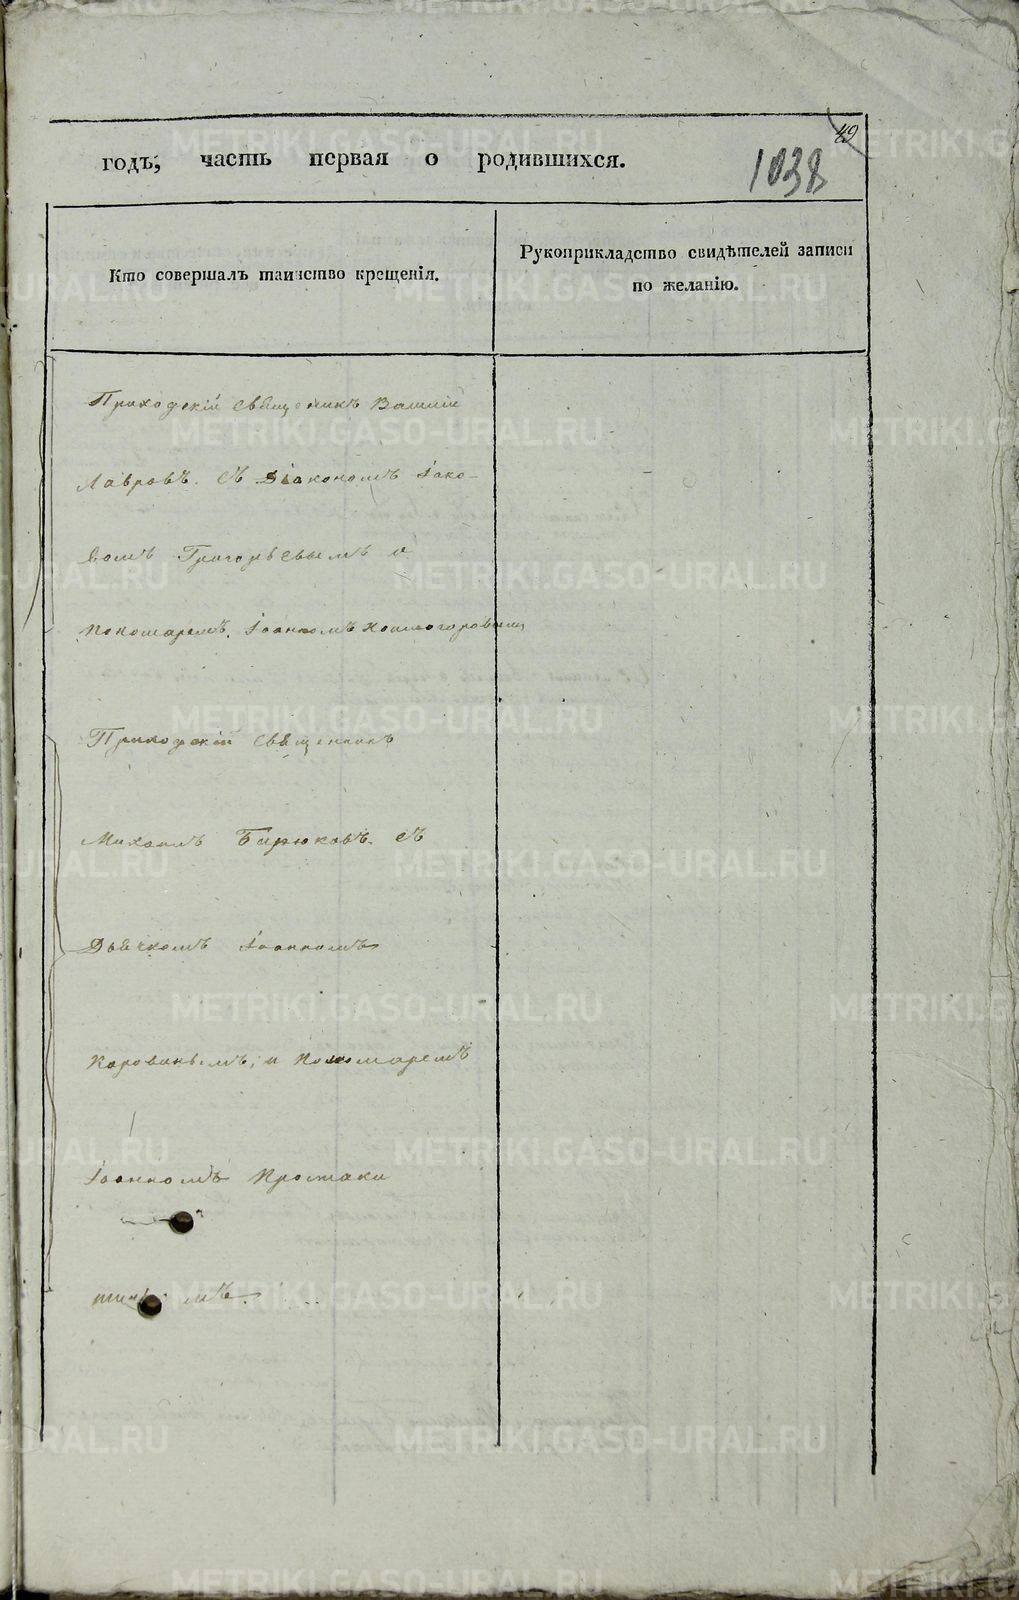 49
годъ, часть первая о родившихся.
1038
Кто совершалъ таинство крещенія.
Рукоприкладство свидѣтелей записи
по желанію.
Приходскій священникъ Василій
Лавровъ. съ Діакономъ Іако-
вомъ Григорьевымъ и
Пономаремъ. Іоанномъ Холмогоровымъ
Приходскій священникъ
Михаилъ Бирюковъ. съ
Дьячкомъ Іоанномъ
Коровинымъ, и Пономаремъ
Іоанномъ Простаки
METRIKI.GASO-URAL.RU